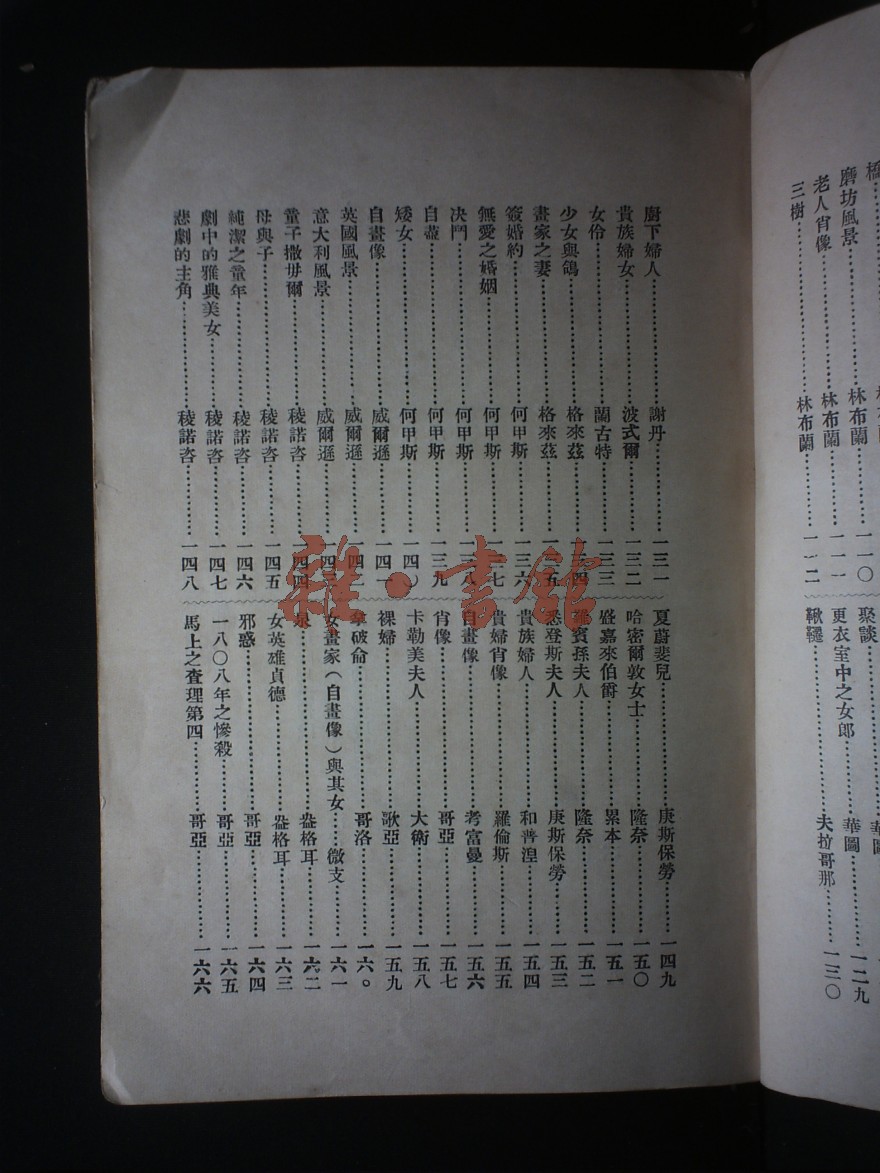 橋
磨坊風景 林布蘭 一一〇
老人肖像 林布蘭 一一一
三樹 林布蘭 一一二
聚談 華圖 一二九
更衣室中之女郎 華圖
鞦韆 夫拉哥那 一三〇
廚下婦人 謝丹 一三一
貴族婦女 波式爾 一三二
女伶 蘭古特 一三三
少女與鴿 格來茲 一三四
畫家之妻 格來茲 一三五
簽婚約 何甲斯 一三六
無愛之婚姻 何甲斯 一三七
決鬥 何甲斯 一三八
自盡 何甲斯 一三九
矮女 何甲斯 一四〇
自畫像 威爾遜 一四一
英國風景 威爾遜 一四二
意大利風景 威爾遜 一四三
童子撒毋爾 稜諾咨 一四四
母與子 稜諾咨 一四五
純潔之童年 稜諾咨 一四六
劇中的雅典美女 稜諾咨 一四七
悲劇的主角 稜諾咨 一四八
夏蔚斐兒 庚斯保勞 一四九
哈密爾敦女士 隆奈 一五〇
盛嘉來伯爵 累本 一五一
羅賓孫夫人 隆奈 一五二
悉登斯夫人 庚斯保勞 一五三
貴族婦人 和普湼 一五四
貴婦肖像 羅倫斯 一五五
自畫像 考富曼 一五六
肖像 哥亞 一五七
卡勒美夫人 大衛 一五八
裸婦 歌亞 一五九
拿破侖 哥洛 一六〇
女畫家（自畫像）與其女 微支 一六一
泉 盎格耳 一六二
女英雄貞德 盎格耳 一六三
邪惑 哥亞 一六四
一八〇八年之慘殺 哥亞 一六五
馬上之查理第四 哥亞 一六六
雜·書館